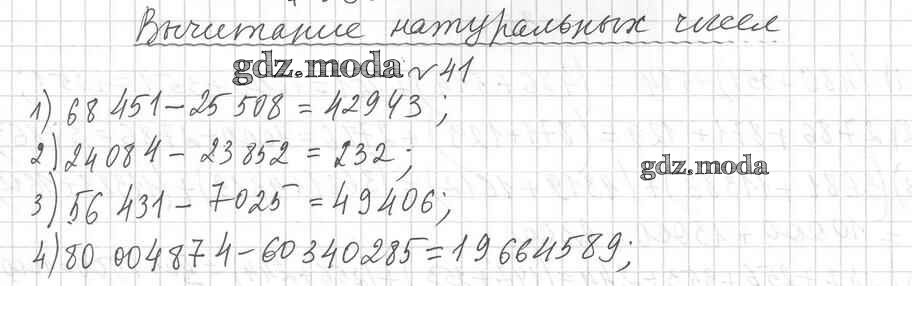 Вычитание натуральных чисел
gdz.moda № 41
1) 68 451 – 25 508 = 42943;
2) 24084 – 23852 = 232;
gdz.moda
3) 56 431 – 7025 = 49406;
4) 80 004874 – 60340285 = 19664589;